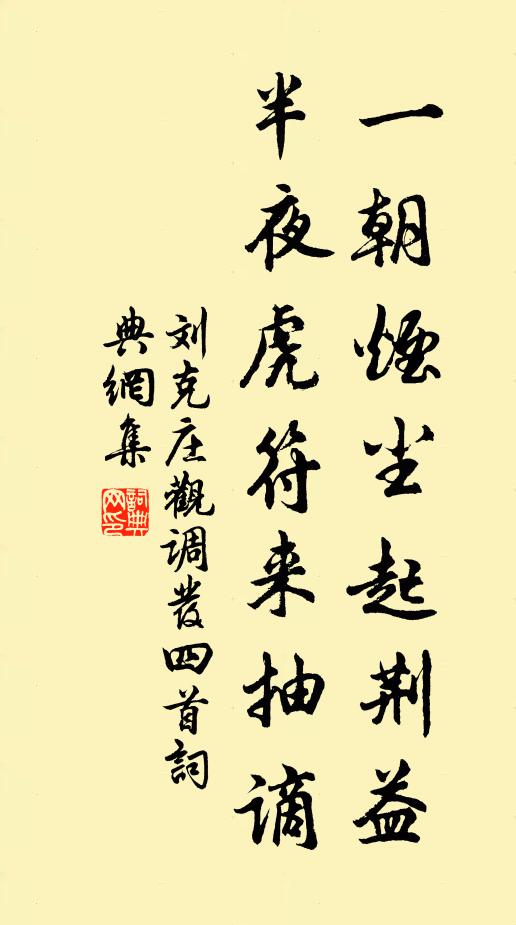 一朝煙尘起荆益
半夜虎符来抽谪
刘克庄觀调發四首詞
典網集
詞典
网印